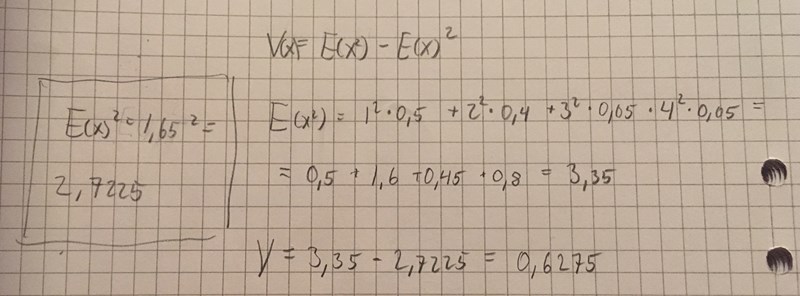 V(x)= E(x²) - E(x)²
E(x)² = 1,65² =
2,7225
E(x²) = 1²·0,5 + 2²·0,4 + 3²·0,05 · 4²·0,05 =
= 0,5 + 1,6 + 0,45 + 0,8 = 3,35
V = 3,35 - 2,7225 = 0,6275